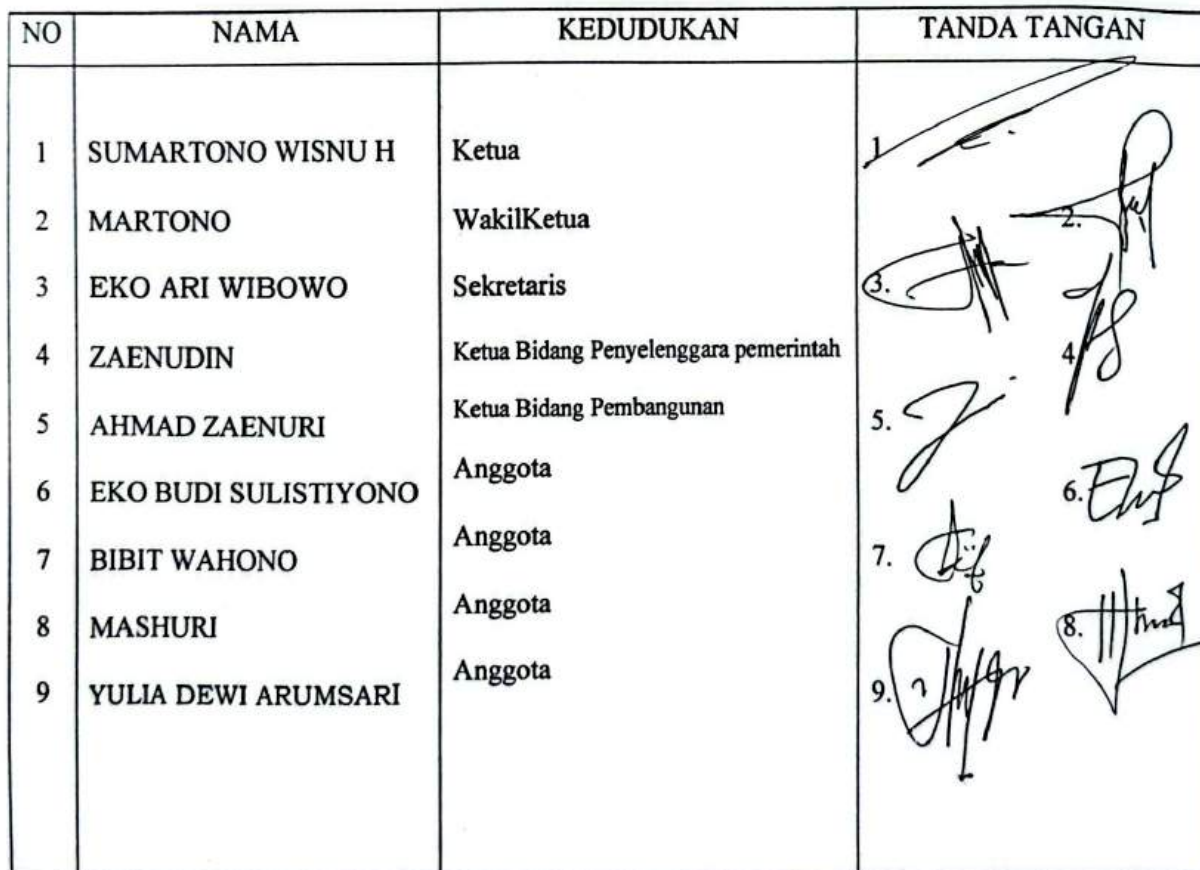 NO NAMA KEDUDUKAN TANDA TANGAN
1 SUMARTONO WISNU H Ketua 1
2 MARTONO WakilKetua 2.
3 EKO ARI WIBOWO Sekretaris 3.
4 ZAENUDIN Ketua Bidang Penyelenggara pemerintah 4
5 AHMAD ZAENURI Ketua Bidang Pembangunan 5.
6 EKO BUDI SULISTIYONO Anggota 6.
7 BIBIT WAHONO Anggota 7.
8 MASHURI Anggota 8.
9 YULIA DEWI ARUMSARI Anggota 9.